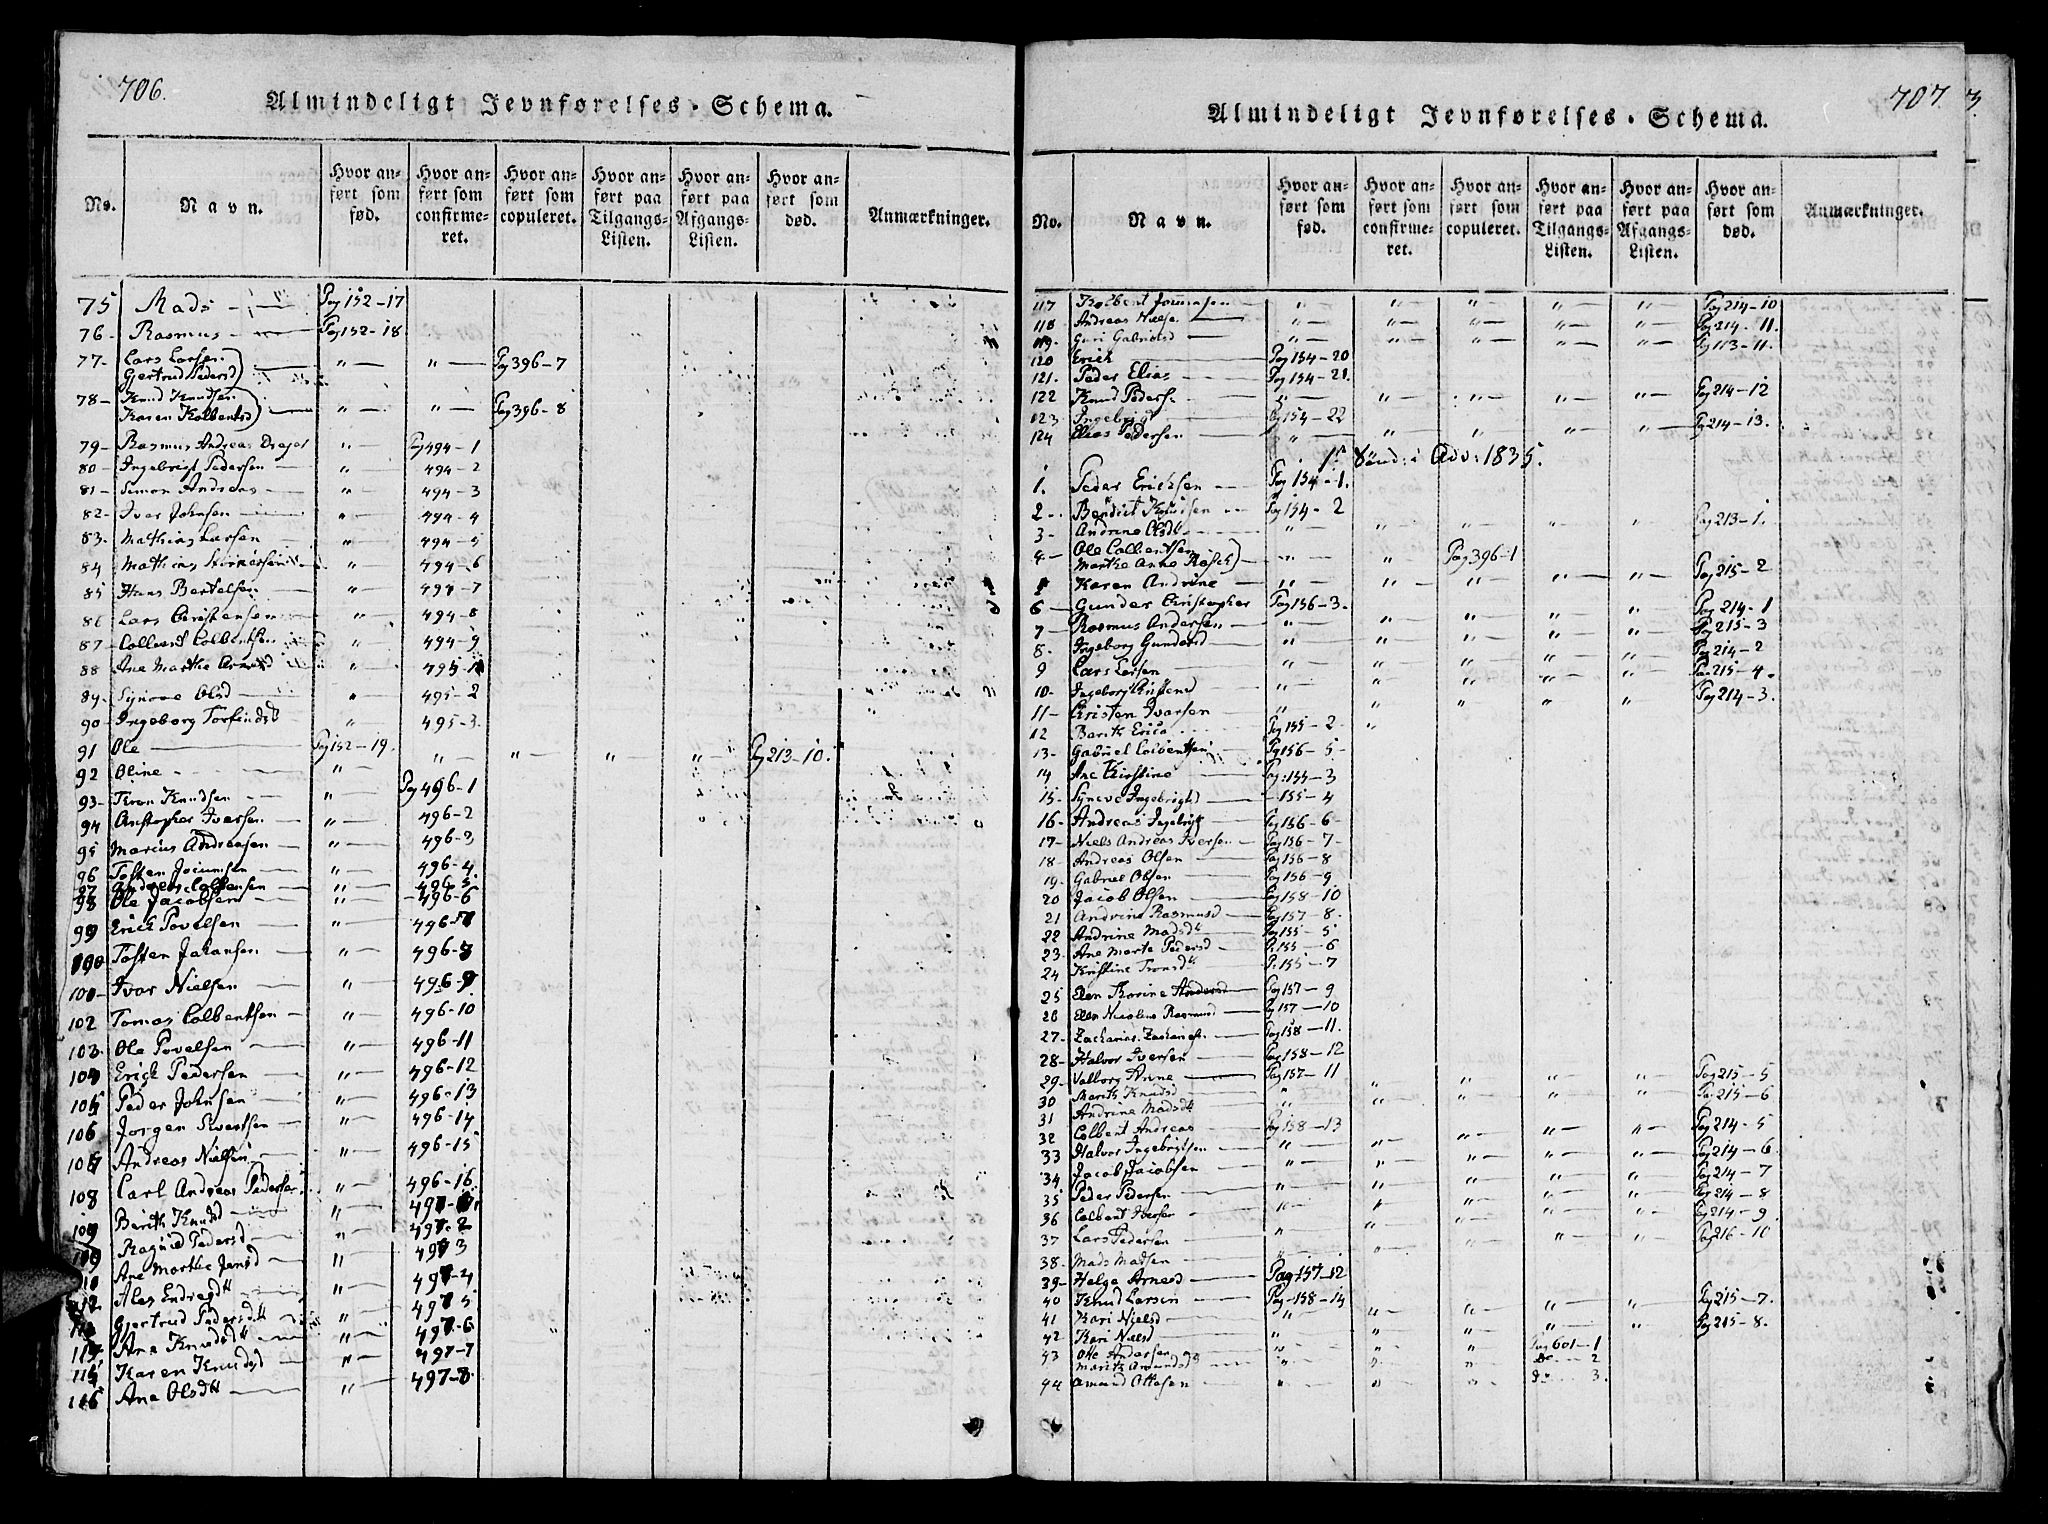 706.
Almindeligt Jevnførelses-Schema.
No. Navn. Hvor anført som fød. Hvor anført som confirmeret. Hvor anført som copuleret. Hvor anført paa Tilgangs-Listen. Hvor anført paa Afgangs-Listen. Hvor anført som død. Anmærkninger.
75 Mads Pag 152-17
76- Rasmus Pag 152-18
77- Lars Larsen
Gjertrud Pedersd " " Pag 396-7
78- Knud Knudsen
Karen Kolbentsd " " Pag 396-8
79- Rasmus Andreas " Pag 494-1
80- Ingebrigt Pedersen " 494-2
81- Simon Andreas " 494-3
82- Iver Johnsen " 494-4
83- Mathias Larsen " 494-5
84 Mathias " 494-6
85 Hans Bertelsen " 494-7
86 Lars Christensen " 494-8
87- Colbent Colbentsen " 494-9
88 Ane Marthe " 495-1
89- Synove Olsd " 495-2
90- Ingeborg Torfindsd " 495-3.
91 Ole Pag 152-19. " " " " Pag 213-10.
92 Oline "
93- Knudsen " Pag 496-1
94 Christopher Iversen " 496-2
95 Marius Andreasen " 496-3
96 Tosten " 496-4
97 Anders Colbensen " 496-5
98 Ole Jacobsen " 496-6
99 Erich Povelsen " 496-7
100 Tosten Johansen " 496-8
101- Ivar Nielsen " 496-9
102 Tomas Colbentsen " 496-10
103 Ole Povelsen " 496-11
104 Erich Pedersen " 496-12
105 Peder Johnsen " 496-13
106 Jørgen Sivertsen " 496-14
107 Andreas Nielsen " 496-15
108 Carl Andreas Pedersen " 496-16
109 Berith Knudsd " 497-1
Ragnild Pedersd " 497-2
Ane Marthe Jensd " 497-3
112 Ales Endresd " 497-4
Gjertrud Pedersd " 497-5
Ane Knudsd " 497-6
115 Karen Knudsd " 497-7
116 Ane Olsd " 497-8
707
Almindeligt Jevnførelses-Schema.
No. Navn. Hvor anført som fød. Hvor anført som confirmeret. Hvor anført som copuleret. Hvor anført paa Tilgangs-Listen. Hvor anført paa Afgangs-Listen. Hvor anført som død. Anmærkninger.
117 Kolbent " " " " " Pag 214-10
118 Andreas Nielse " " " " " Pag 214-11.
119. Guri Gabrielsd " " " " " Pag 113-11.
120 Erich Pag 154-20
121. Peder Elias Pag 154-21.
122 Knud Pederse " " " " " Pag 214-12
123 Ingebrigt Pag 154-22
124 Elias Pedersen " " " " " Pag 214-13.
1ste Sønd: i Adv: 1835.
1. Peder Ericksen Pag 154-1.
2- Bendict Knudsen Pag 154-2
3- Andrine Olsd " " " " " Pag 213-1.
4- Ole Colbentsen
Marthe Anne " " Pag 396-1
Karen Andrine " " " " " Pag 215-2
6- Gunder Christopher Pag 156-3.
7- Rasmus Andersen " " " " " Pag 214-1
8. Ingeborg Gundersd " " " " " Pag 215-3
9 Lars Larsen " " " " " Pag 214-2
10- Ingeborg Cristensd " " " " " Pag 215-4.
11- Cristen Ivarsen " " " " " Pag 214-3.
12 Berith Erica Pag 155-2
13- Gabriel Colbentsen Pag 156-5-
14 Ane Kirstine Pag: 155-3
15- Syneve Ingebrigtsd 155-4
16- Andreas Ingebrigt Pag 156-6-
17- Niels Andreas Iversen Pag 156-7-
18 Andreas Olsen Pag 156-8
19. Gabriel Olsen Pag 156-9
20 Jacob Olsen Pag 158-10
21 Andrine Rasmusd Pag 157-8.
22 Andrine Madsd Pag 155-5
23. Ane Marte Pedersd P. 155-6
24 Kristine P. 155-7
25 Elen Karine Andersd Pag 157-9
26 Elen Nicoline Rasmusd Pg 157-10
27- Zacharias Zachariasen Pag 158-11.
28- Halvor Iversen Pag 158-12
29- Valborg Anne Pag 157-11
30 Marith Knudsd " " " " " Pag 215-5
31 Andrine Madsd " " " " " Pag 215-6
32 Colbent Andreas Pag 158-13
33 Halvor Ingebrigtsen " " " " " Pag 214-5
34 Jacob Jacobsen " " " " " Pag 214-6.
35 Peder Pedersen " " " " " Pag 214-7
36 Colbent Iversen " " " " " Pag 214-8
37 Lars Pedersen " " " " " Pag 214-9
38. Mads Madsen " " " " " Pag 216-10
39- Helge Arnesd Pag 157-12
40 Knud Larsen Pag-158-14
41 Kari Nielsd " " " " " Pag 215-7.
42 Kari Nielsd " " " " " Pag 215-8.
43 Otte Andersen " " " Pag 601-1
Marith Amundsd " " " Do 2
44 Amund Ottesen " " " Do 3.